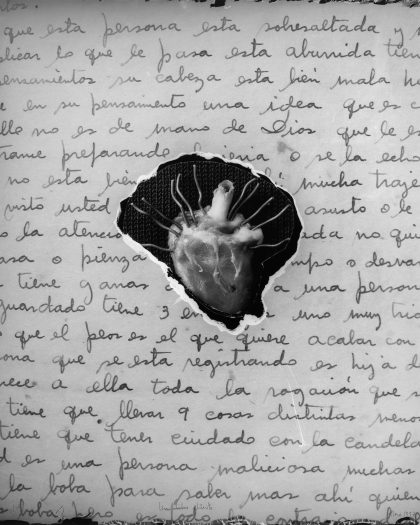 que esta persona esta sobresaltada y
plicar lo que le pasa esta aburrida tien
pensamientos su cabeza esta bien mala h
e en su pensamiento una idea que es
lla no es de mano de Dios que le
preparando o se la echa
no esta bien mucha traje
visto usted asusto o le
o la atencio no qui
asa o pienza mpo o desva
tiene ganas a una person
guardado tiene 3 en uno muy
que el peor es el que quiere acabar con
ona que se esta registrando es hija d
rece a ella toda la
tiene que llevar 9 cosas distintas meno
tiene que tener ciudado con la candela
d es una persona maliciosa muchas
la boba para saber mas ahi quien
boba pero